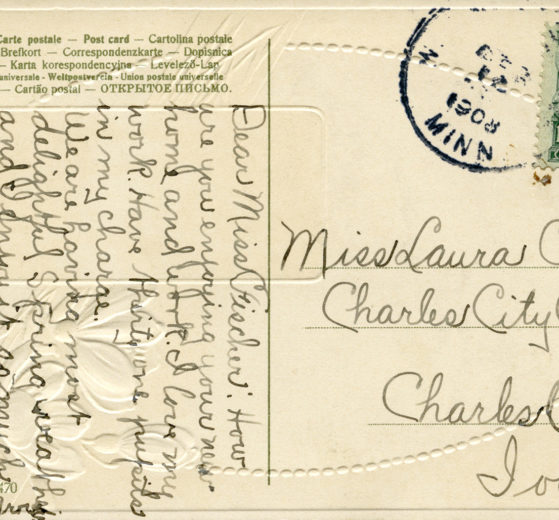 Carte postale — Post card — Cartolina postale
Brefkort — Correspondenzkarte — Dopisnica
— Karta korespondencyjna — Levelező-Lap
universale - Weltpostverein - Union postale universelle
— Cartão postal — ОТКРЫТОЕ ПИСЬМО.
Dear Miss Fischer: How
are you enjoying your new
home and work. I love my
work. Have thirty one pupils
in my charge.
We are having most
delightful Spring weather
and I enjoy it as much
1908
MINN
Miss Laura
Charles City
Charles
470